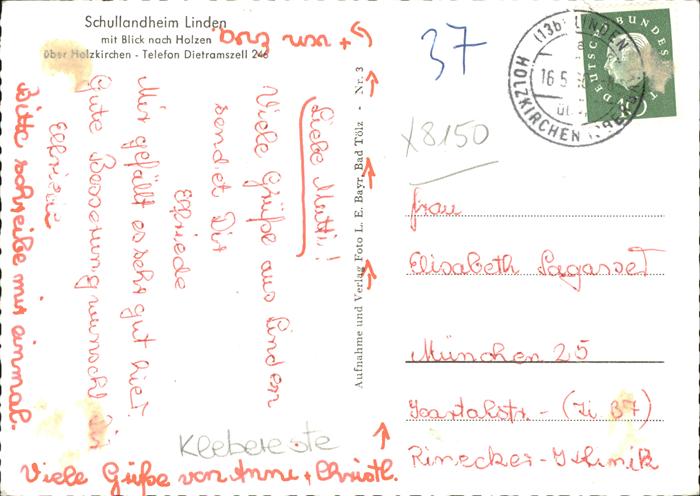 Schullandheim Linden
mit Blick nach Holzen
über Holzkirchen - Telefon Dietramszell 246
Liebe Mutti!
Viele Grüße aus Linden
sendet Dir
Elfriede
Mir gefällt es sehr gut hier.
Gute Besserung wünscht Dir
Elfriede
Bitte schreibe mir einmal.
Viele Grüße von Anni + Christl.
+ von
Klebereste
Aufnahme und Verlag Foto L. E. Bayr, Bad Tölz - Nr. 3
37
X8150
(13b) LINDEN
16.5.
HOLZKIRCHEN
DEUTSCHE BUNDESPOST
10
Frau
Elisabeth Sagasset
München 25
Isartalstr. - (Zi 37)
Rinecker-Klinik